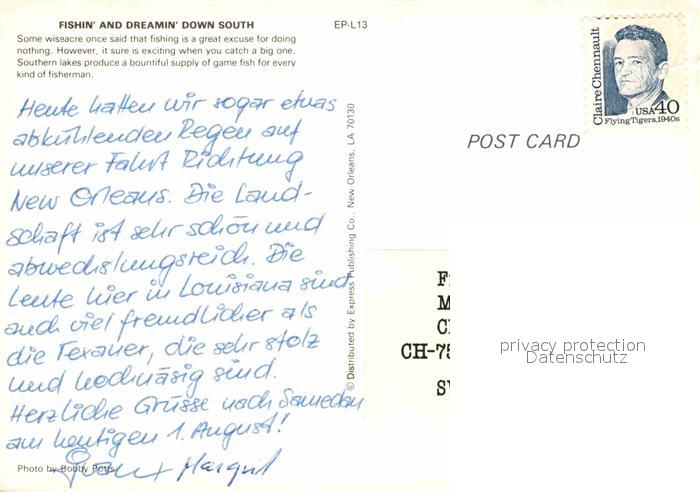 FISHIN' AND DREAMIN' DOWN SOUTH
EP-L13
Some wiseacre once said that fishing is a great excuse for doing
nothing. However, it sure is exciting when you catch a big one.
Southern lakes produce a bountiful supply of game fish for every
kind of fisherman.
Heute hatten wir sogar etwas
abkühlenden Regen auf
unserer Fahrt Richtung
New Orleans. Die Land-
schaft ist sehr schön und
abwechslungsreich. Die
Leute hier in Louisiana sind
auch viel freundlicher als
die Texaner, die sehr stolz
und hochnäsig sind.
Herzliche Grüsse nach Samedan
am heutigen 1. August!
Margrit
Photo by Bobby Potts
© Distributed by Express Publishing Co., New Orleans, LA 70130
POST CARD
Claire Chennault
USA 40
Flying Tigers, 1940s
F
M
C
CH-75
S
privacy protection
Datenschutz